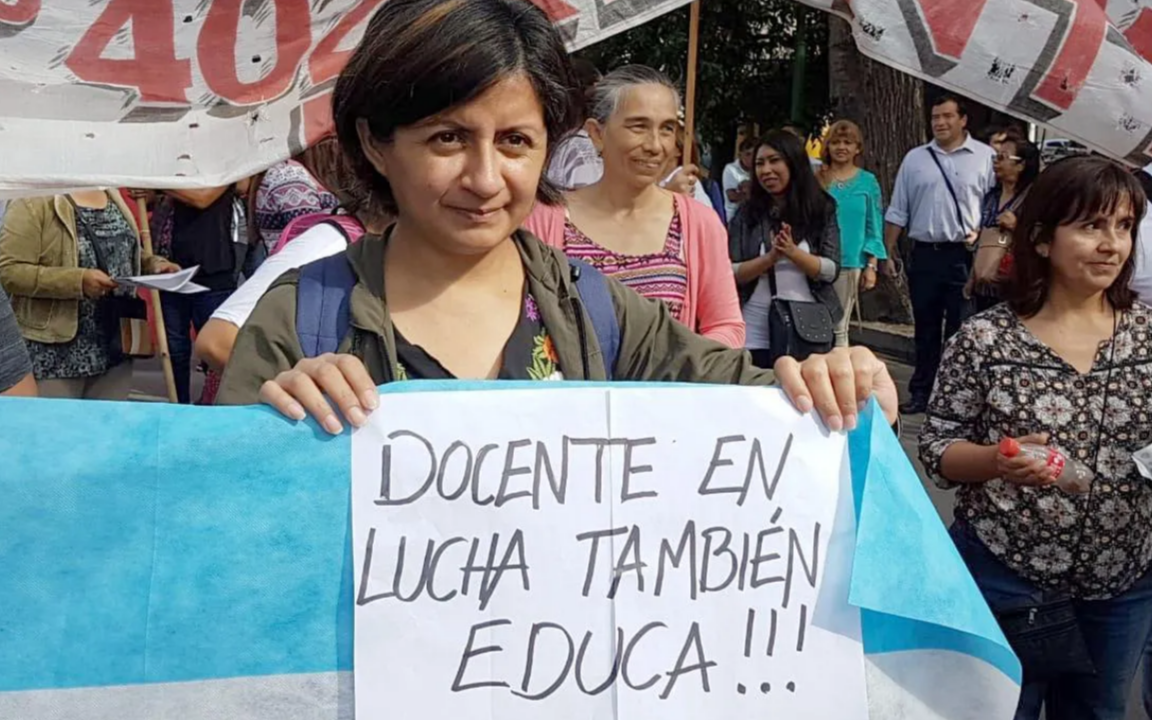 402
DOCENTE EN
LUCHA TAMBIÉN
EDUCA!!!